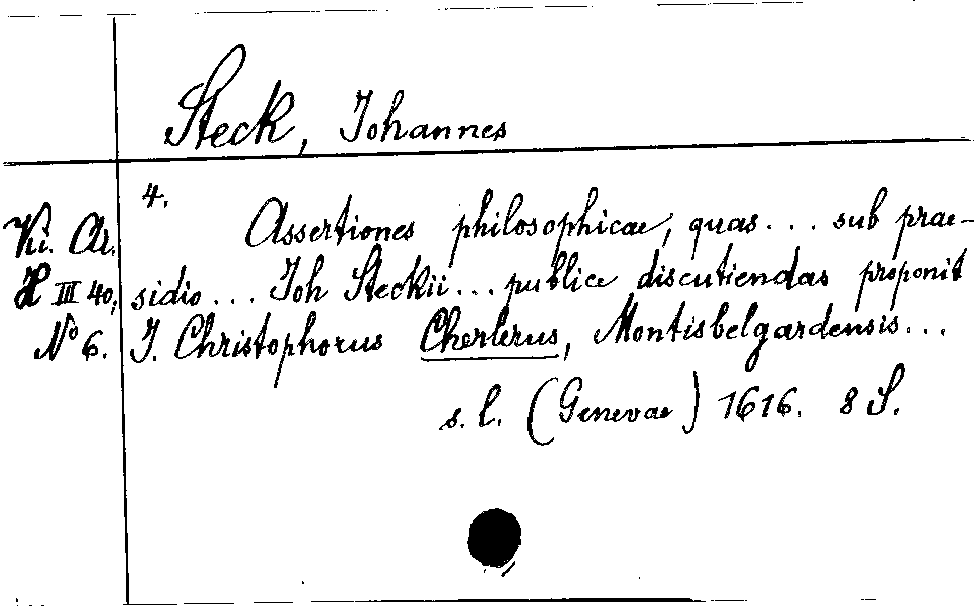 Steck, Johannes
4.
Ki. Ar. Assertiones philosophicae, quas... sub prae-
H III 40, sidio... Joh Steckii... publice discutiendas proponit
No 6. J. Christophorus Cherlerus, Montisbelgardensis...
s. l. (Genevae) 1616. 8 S.